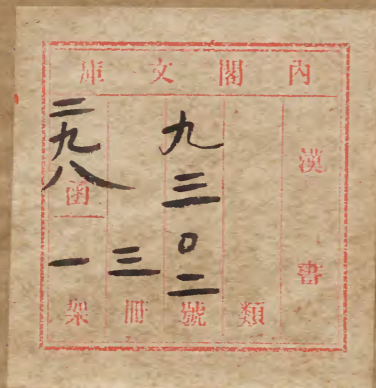 內閣文庫
漢書
類
九三〇二號
三冊
二九八函
一架